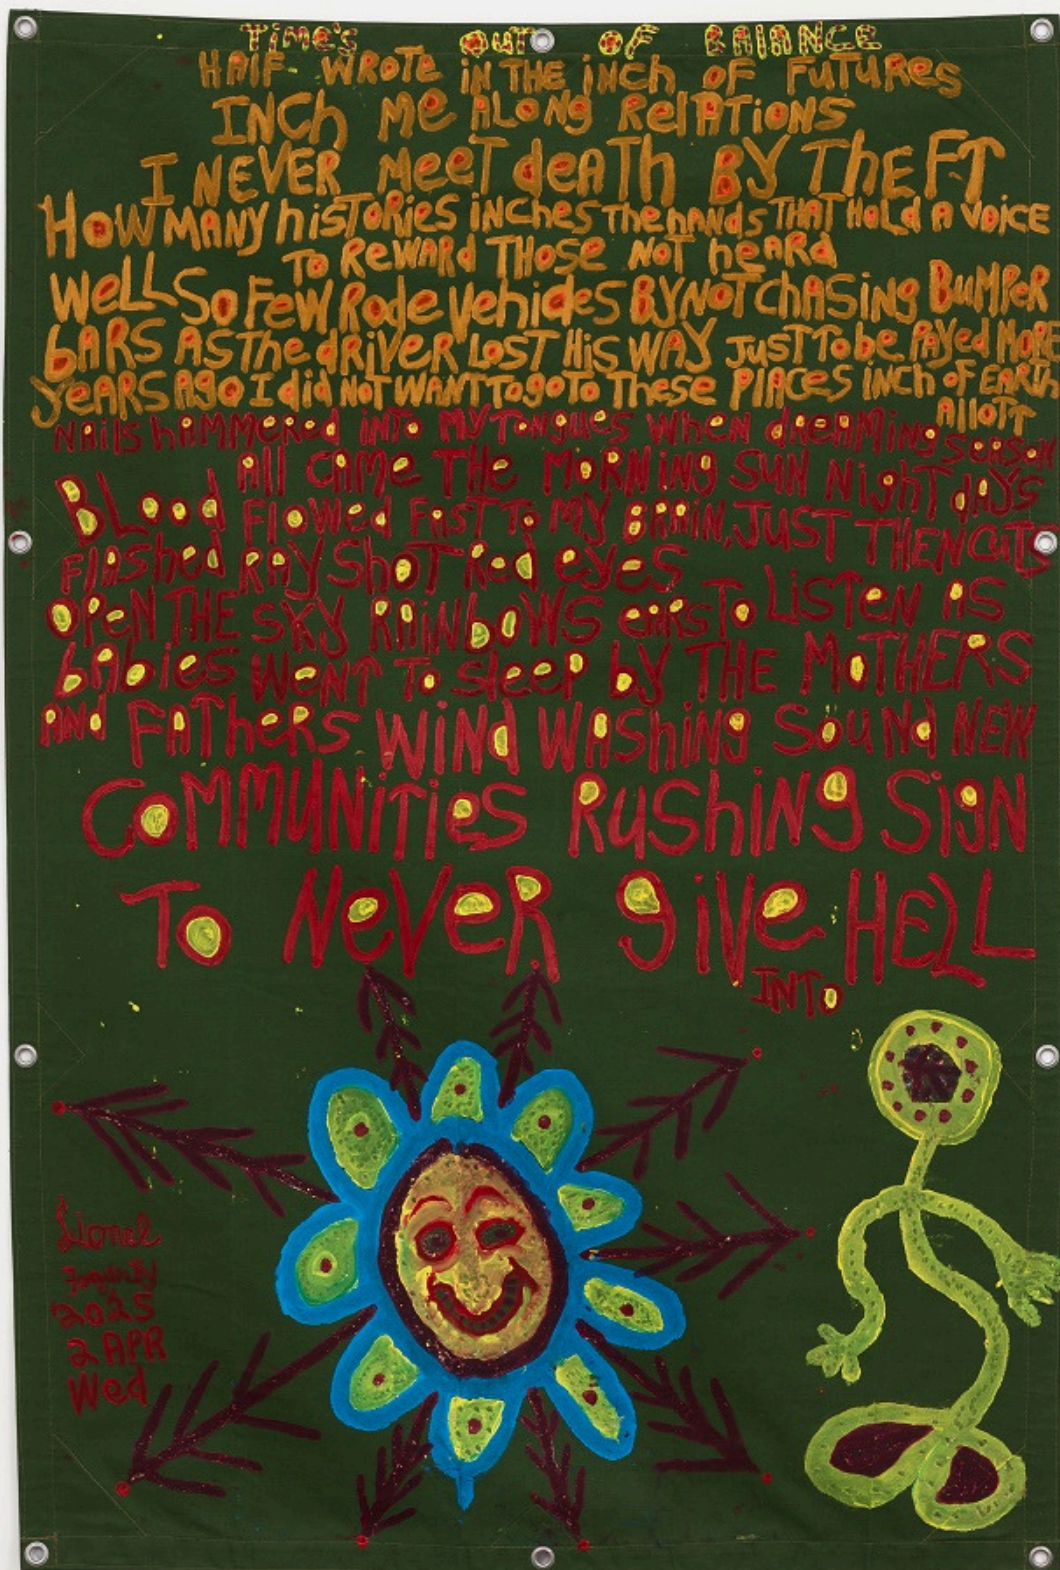 TiME's OUT OF BAlANCE
HAlF WROTe iN THE iNch OF FUTURes
INCh Me ALONg RelATiONS
I NEVER MeeT deATh BY TheFT
HOW MANY hisTORies iNChes The hANds THAT HOLd A VOiCE
TO ReWARd THOSe NOT heARd
WeLLS SO FeW RODe Vehicles BY NOT ChASiNg BUMPeR
bARS AS The dRiVER LOST HiS WAY JUST TO be PAYed MORe
YeARS AgO I did NOT WANT To gO TO These PlACes iNCh OF EARTh
AllOTT
NAils hAMMeRed iNTO MY TONgUes WheN dReAMiNg SeASON
All CAMe THe MORNiNg SUN NighT dAYS
BLOOd FlOWed FAST TO MY BRAiN, JUST THEN CUTS
FlAShed RAY ShOT Red eYes
OPeN THE SKY RAiNbOWS eARs TO LiSTeN AS
bAbies WeNT TO sleeP bY THE MOTHERS
ANd FATheRS WiNd WAShiNg SOUNd NEW
COMMUNiTies RUShiNg SigN
TO NeVeR giVe HELL
INTO
Lionel
2025
2 APR
Wed